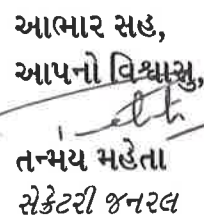 આભાર સહ,
આપનો વિશ્વાસુ,
તન્મય મહેતા
સેક્રેટરી જનરલ